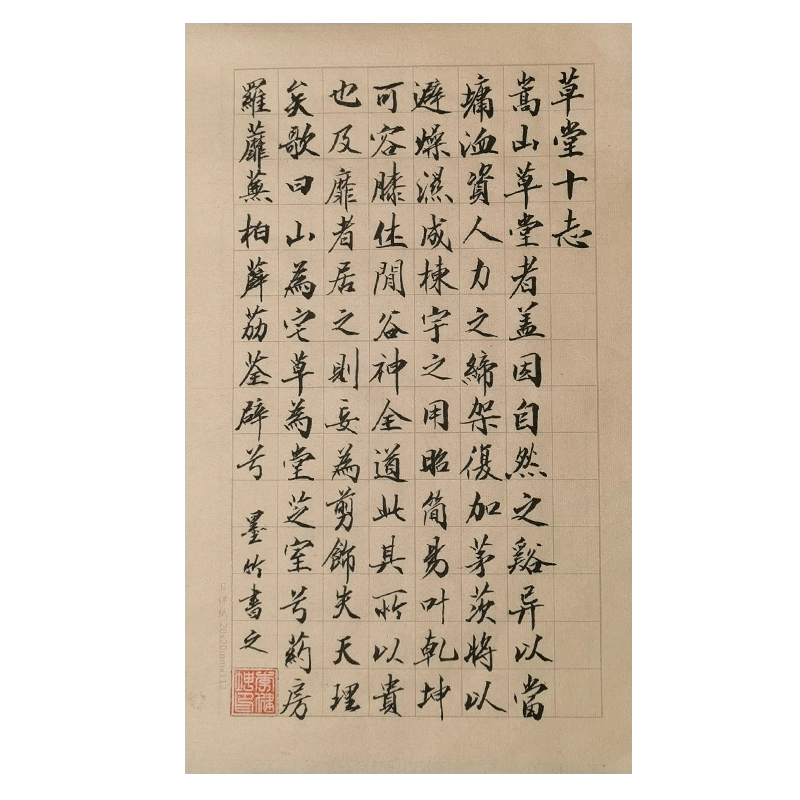 草堂十志
嵩山草堂者盖因自然之谿阜以當
墉洫資人力之締架復加茅茨將以
避燥濕成棟宇之用昭简易叶乾坤
可容膝休閒谷神全道此其所以貴
也及靡者居之則妄為剪飾失天理
矣歌曰山為宅草為堂芝室兮葯房
羅蘼蕪柏薜荔荃辟兮 墨竹書之